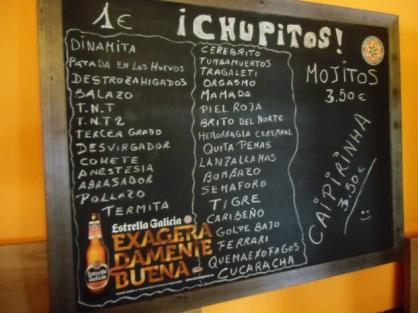 1€ ¡CHUPITOS!
DINAMITA
PATADA EN LOS HUEVOS
DESTROZAHIGADOS
BALAZO
T.N.T
T.N.T 2
TERCER GRADO
DESVIRGADOR
COHETE
ANESTESIA
ABRASADOR
POLLAZO
TERMITA
CEREBRITO
TUMBAMUERTOS
TRAGALETI
ORGASMO
MAMADA
PIEL ROJA
BRITO DEL NORTE
HEMORRAGIA CEREBRAL
QUITA PENAS
LANZALLAMAS
BOMBAZO
SEMAFORO
TIGRE
CARIBEÑO
GOLPE BAJO
FERRARI
QUEMAEXOFAGOS
CUCARACHA
MOJITOS
3.50€
CAIPIRINHA
3.50€
Estrella Galicia
EXAGERA
DAMENTE
BUENA